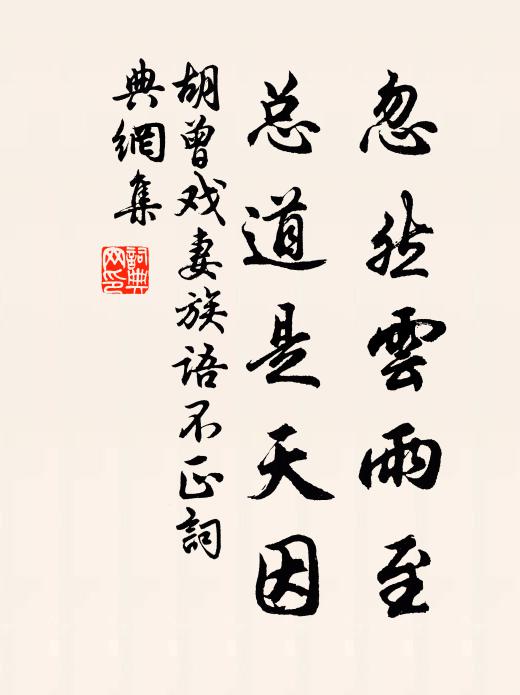 忽然雲雨至
总道是天因
胡曾戏妻族语不正詞
典網集
詞典网印